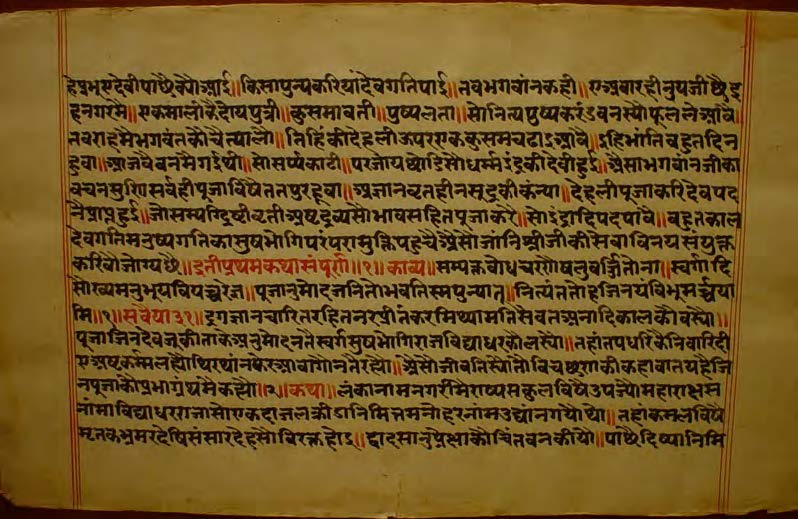 हेप्रभुएदेवीपाछैक्यौआई॥किसापुन्यकरियांदेवगतिपाई॥तबभगवांनकही॥एअबारहीनुपजीछैइ
हनगरमै॥एकमालीकैदोयपुत्री॥कुसमावती॥पुष्पलता॥सोनित्यपुष्पकरंडवनस्यौफूलले आवै॥
तबराहमैभगवंतकौचैत्यालौ॥तिहिंकीदेहलीऊपरएककुसमचढाइआवै॥इहिभांतिबहुतदिन
हुवा॥आजवैवनमैगईथी॥सोसर्प्पकाटी॥परजायछोडिसोधर्म्मइंद्रकीदेवीहुई॥असाभगवांनजीका
वचनसुणिसर्वहीपूजाविषैततपुरहूवा॥अज्ञानव्रतहीनसूद्रकीकंन्या॥देहलीपूजाकरिदेवपद
नैप्राप्तहुई॥जोसम्यग्दिष्टीव्रतीअष्टद्रव्यसौभावसहितपूजाकरै॥सोइंद्रादिपदपावै॥बहुतकाल
देवगतिमनुष्यगतिकासुषभोगिपरंपरामुक्तिपहुचैअैसोजांनिश्रीजीकीसेवाविनयसंयुक्त
करिवोजोग्यछै॥इतीप्रथमकथासंपूर्ण॥१॥काव्य॥सम्यक्तबोधचरणै॥स्वर्गादि
सौख्यमनुभूय॥पूजानुमोदजनितोभवतिस्मपुन्यात्॥नित्यंततोहंजिनपंविभुमर्च्चया
मि॥१॥सवैया३१॥द्रगज्ञानचारितरहितनरप्रीतंकरमिथ्यामतिसेवतअनादिकालकौवस्यौ॥
पूजाजिनदेवजूकीताकैअनुमोदनतैस्वर्गसुषभोगिराजविद्याधरकौलस्यौ॥तहांतपधरिकैनिवारिदी
एअष्टकर्म्मलह्यौथिरथांनफेरआवागौनतैरह्यौ॥अैसौजीव॥कीकहावातयहैजि
नपूजाकौप्रभावग्रंथमैकह्यौ॥२॥कथा॥लंकानामनगरीमैराष्यसकुलविषैउपज्यौमहाराक्षस
नांमाविद्याधरराजासोएकदाजलक्रीडानिमित्तमनोहरनांमउद्यांनगयोथो॥तहाकमलविषै
मृतकभ्रमरदेषिसंसारदेहसौविरक्तहोइ॥द्वादसानुप्रेक्षाकौचिंतवनकीयौ॥पाछैदिष्यानिमि